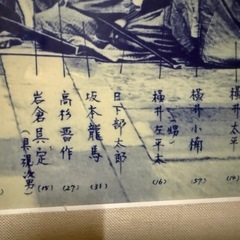 横井太平
横井小楠
(57)
横井左平太
(〃甥)
(16)
日下部太郎
坂本龍馬
(31)
高杉晋作
(27)
岩倉具定
(具視次男)
(15)